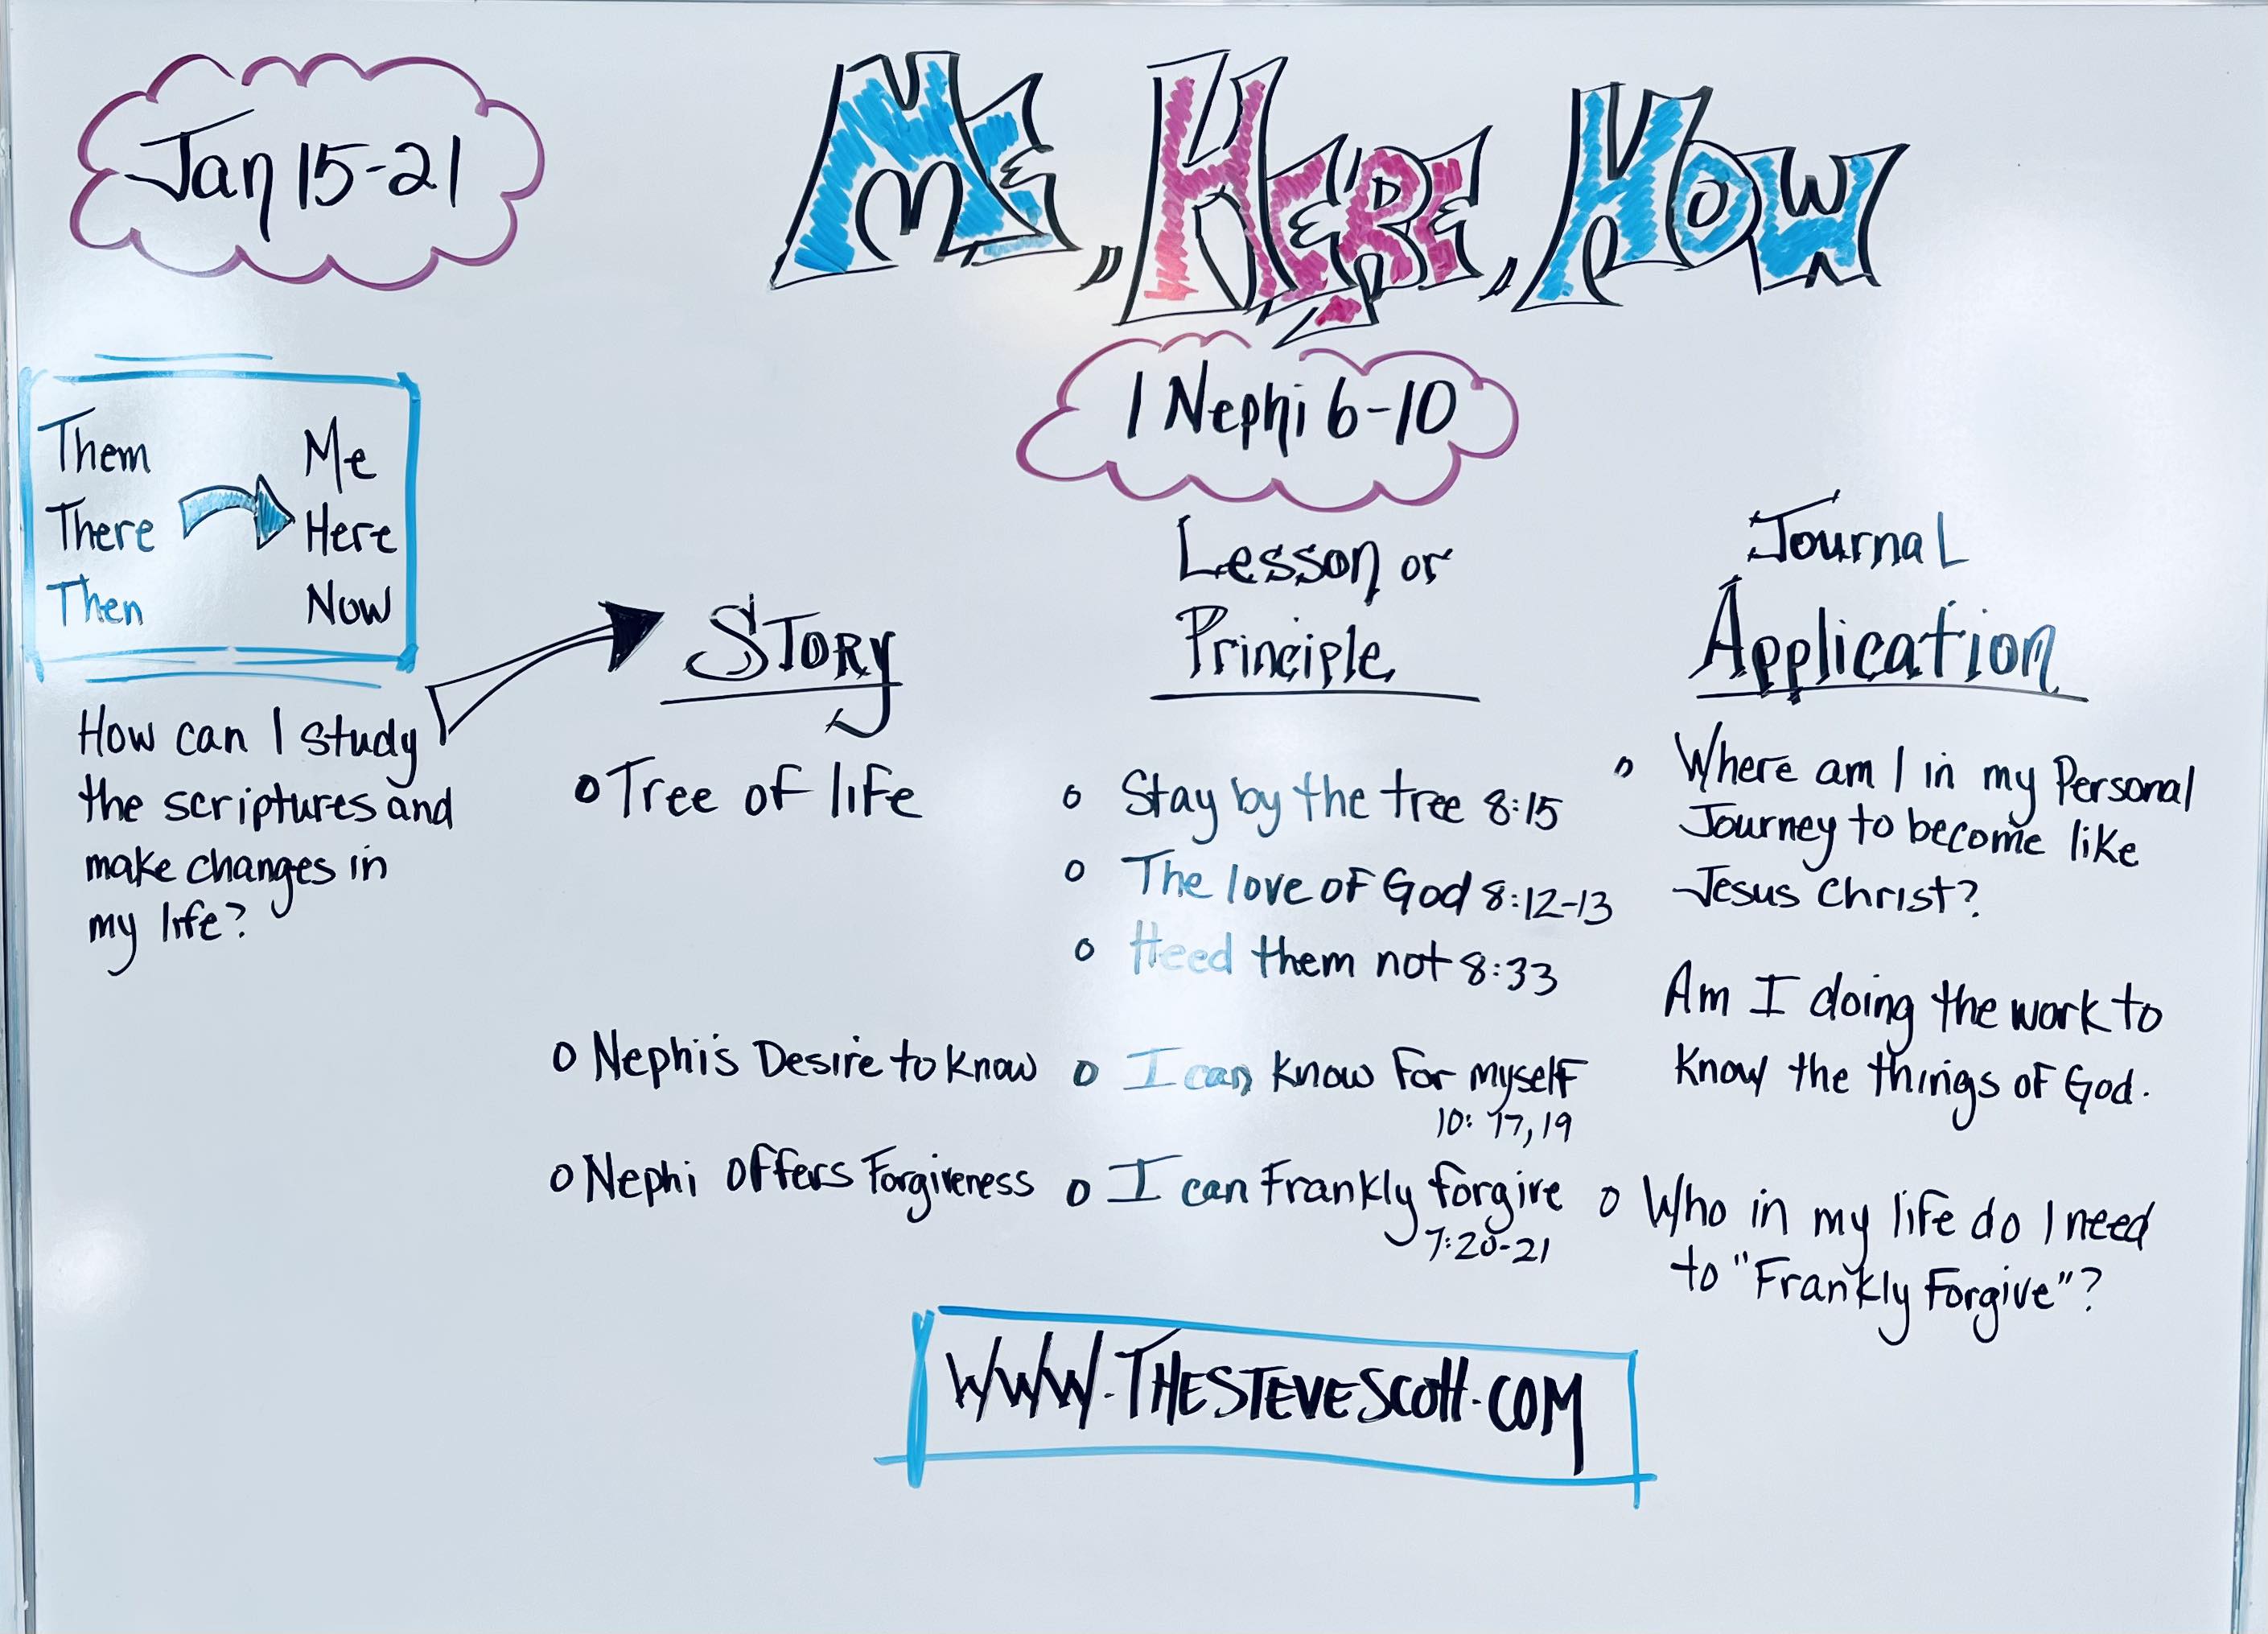 Jan 15-21
Me, Here, How
1 Nephi 6-10
Them Me
There Here
Then Now
How can I study
the scriptures and
make changes in
my life?
Story
o Tree of life
o Nephi's Desire to know
o Nephi offers Forgiveness
Lesson or
Principle
o Stay by the tree 8:15
o The love of God 8:12-13
o Heed them not 8:33
o I can know for myself
10: 17, 19
o I can Frankly forgive
7:20-21
Journal
Application
o Where am I in my Personal
Journey to become like
Jesus Christ?
Am I doing the work to
know the things of God.
o Who in my life do I need
to "Frankly Forgive"?
WWW.THESTEVESCOTT.COM